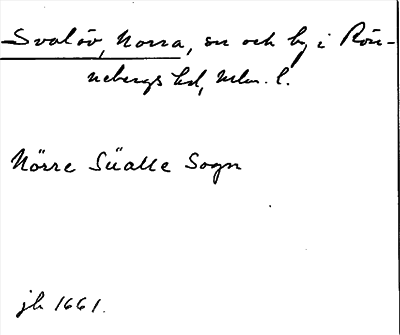 Svalöv, Norra, sn och by i Rön-
nebergs hd, Mlm. l.
Nörre Süalle Sogn
jb 1661.